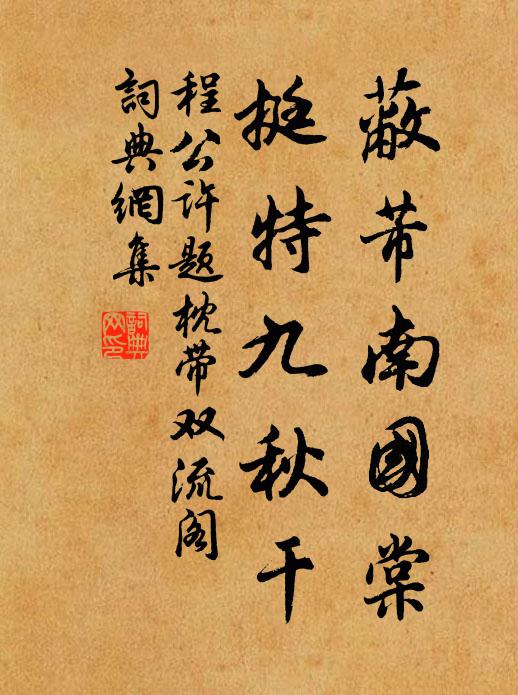 蔽芾南國棠
挺特九秋干
程公许题枕带双流阁
詞典網集
詞典网印